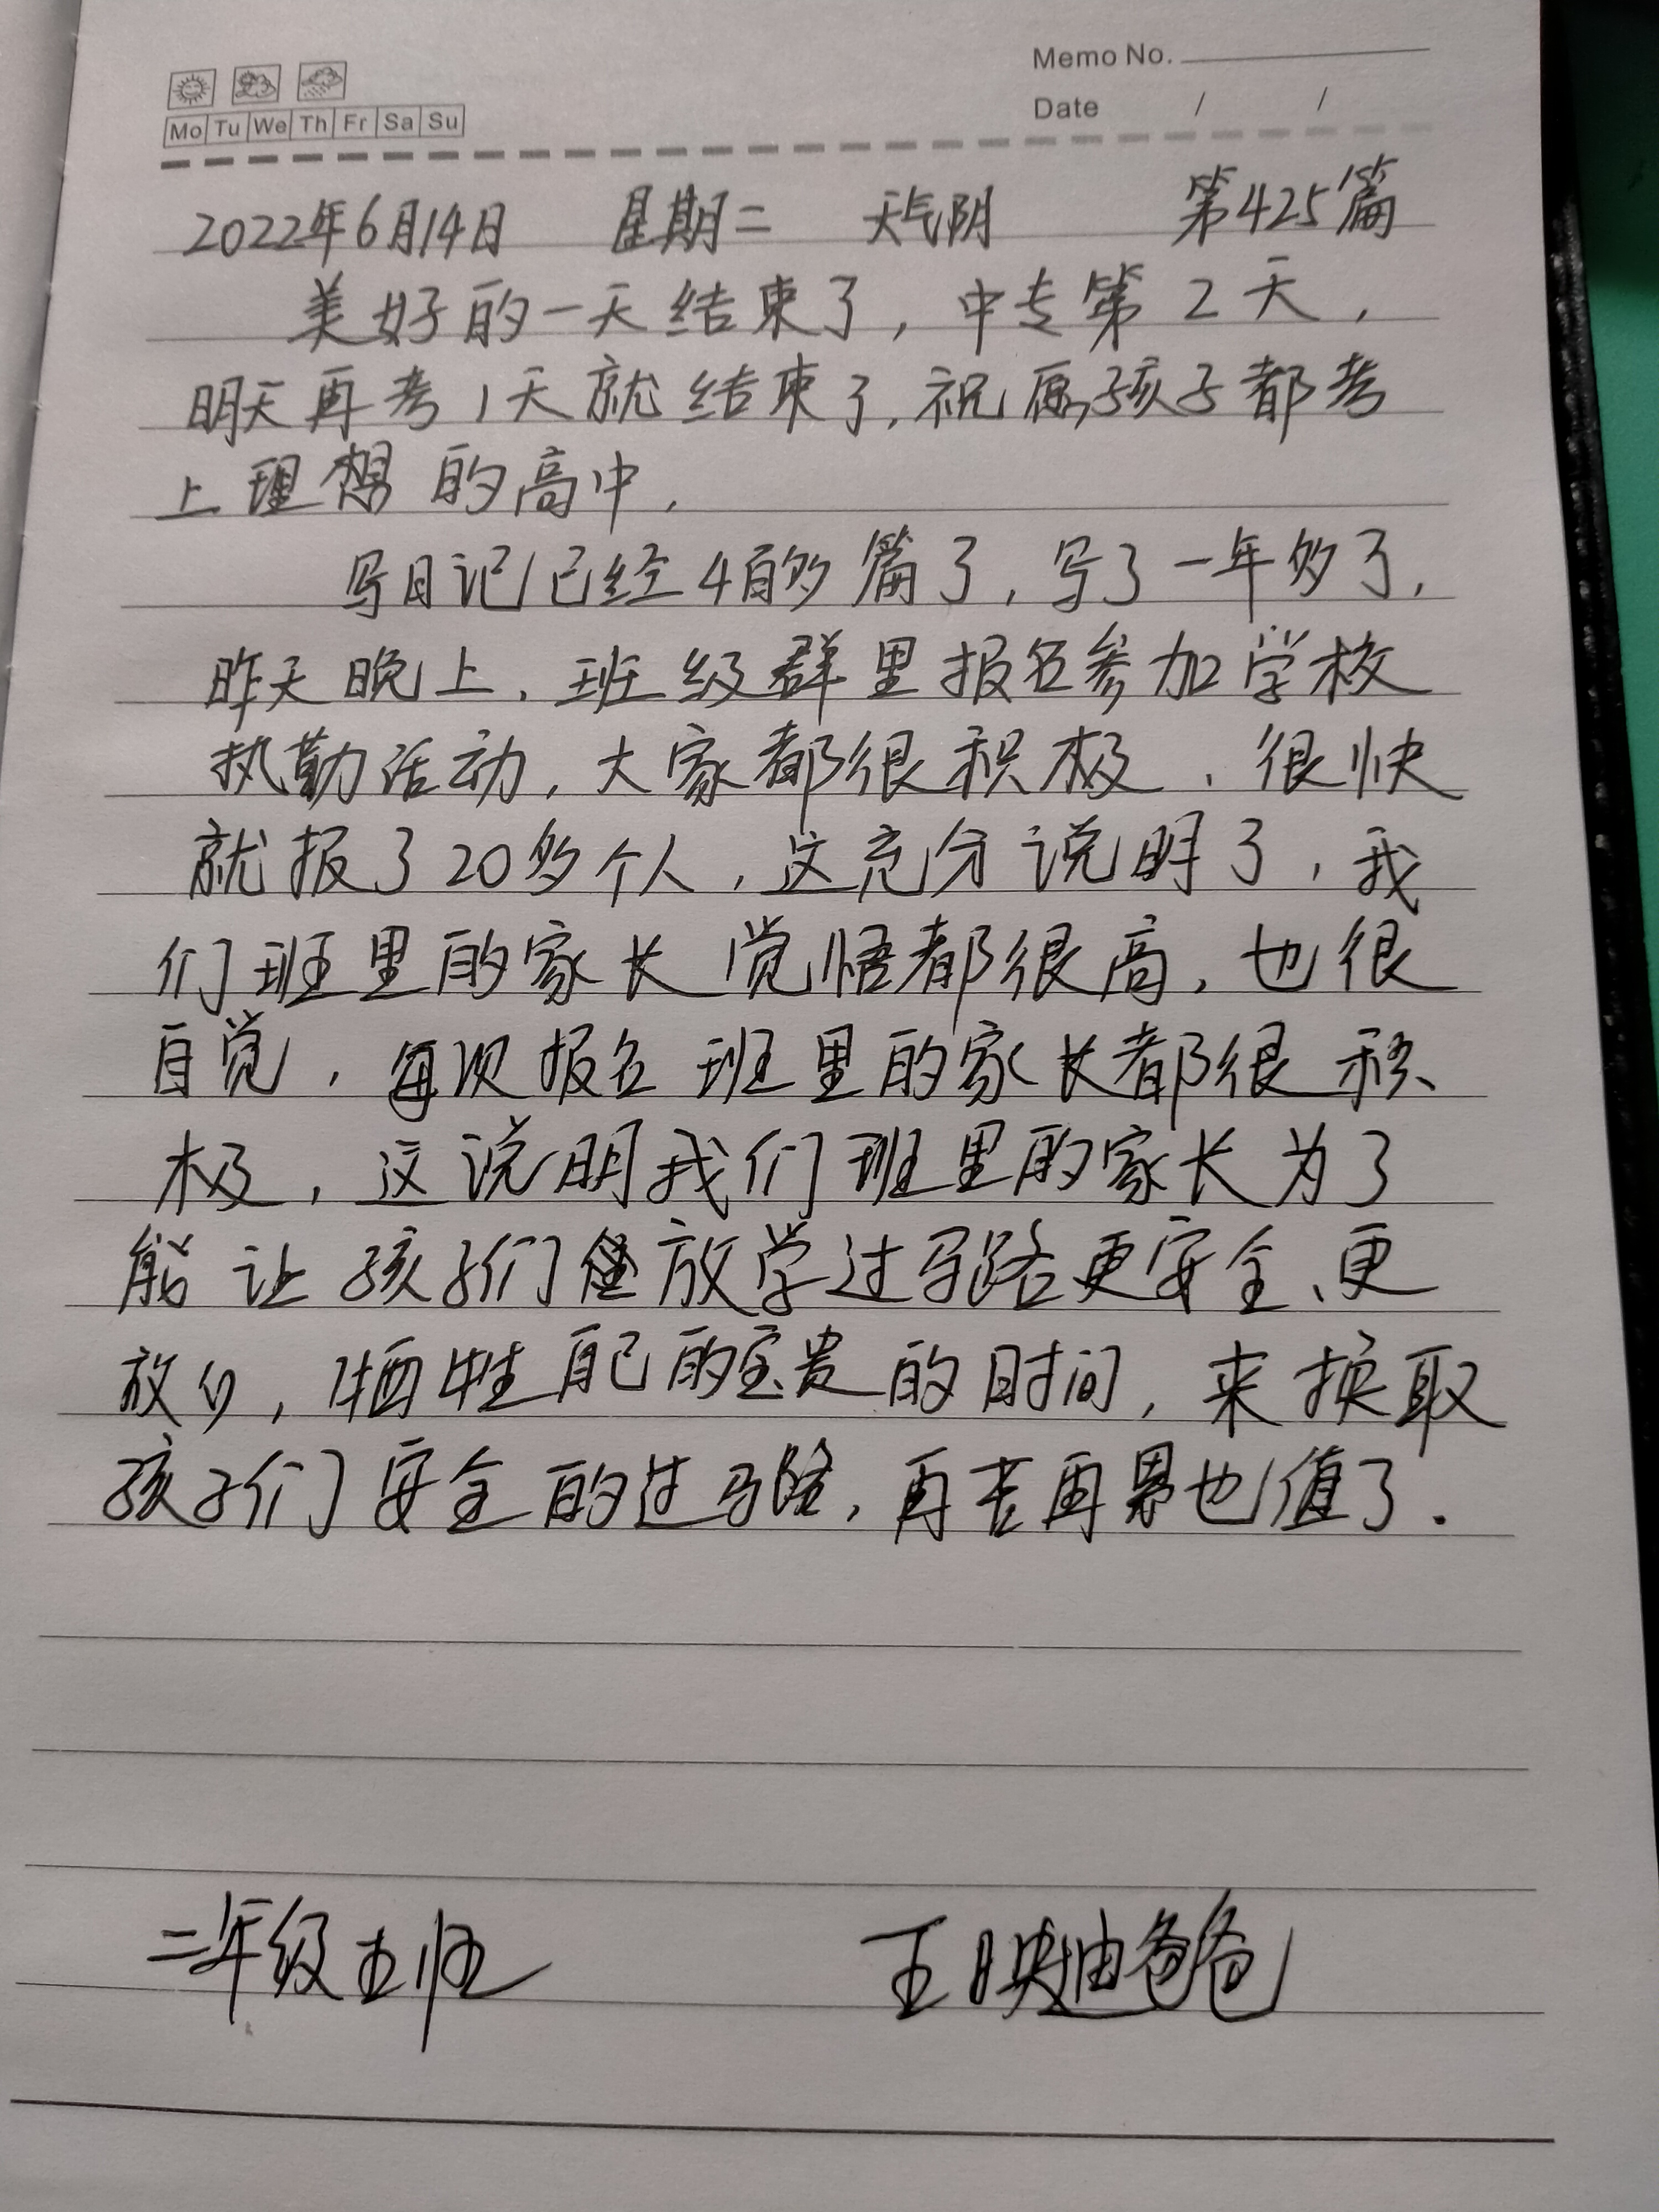 Memo No.
Mo Tu We Th Fr Sa Su
Date / /
2022年6月14日 星期二 天气阴 第425篇
美好的一天结束了，中专第2天，
明天再考1天就结束了，祝愿孩子都考
上理想的高中，
写日记已经4百多篇了，写了一年多了，
昨天晚上，班级群里报名参加学校
执勤活动，大家都很积极、很快
就报了20多个人，这充分说明了，我
们班里的家长觉悟都很高，也很
自觉，每次报名班里的家长都很积
极，这说明我们班里的家长为了
能让孩子们放学过马路更安全、更
放心，牺牲自己的宝贵的时间，来换取
孩子们安全的过马路，再苦再累也值了.
二年级五班 王映迪爸爸